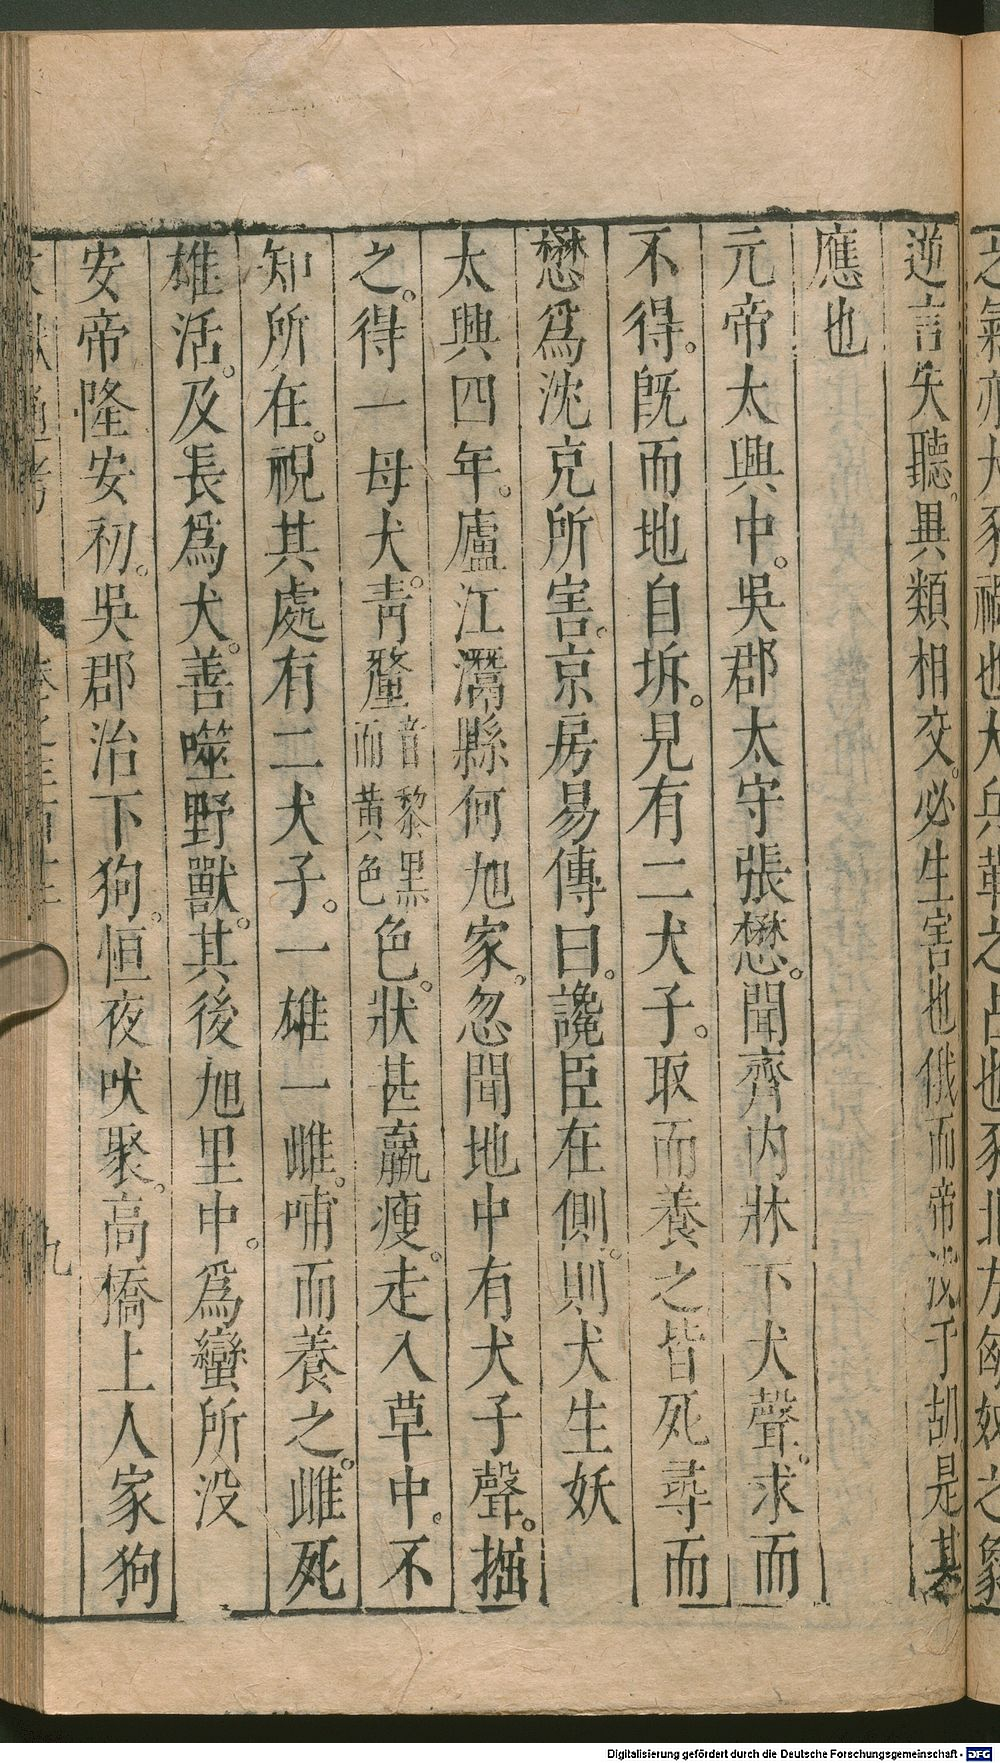 之氣亦犬豕禍也犬兵革之占也豕北方匈奴之象
逆言失聽。異類相交。必生害也俄而帝没于胡是其
應也
元帝太興中。吳郡太守張懋。聞齊内牀下犬聲。求而
不得。旣而地自坼。見有二犬子。取而養之皆死尋而
懋爲沈克所害。京房易傳曰。讒臣在側。則犬生妖
太興四年。廬江灊縣何旭家。忽聞地中有犬子聲。掘
之。得一母犬。青㹈音黎黑而黄色色。狀甚羸瘦。走入草中。不
知所在。視其處有二犬子。一雄一雌。哺而養之。雌死
雄活。及長爲犬。善噬野獸。其後旭里中。爲蠻所没
安帝隆安初。吳郡治下狗。恒夜吠聚。高橋上人家狗
九
Digitalisierung gefördert durch die Deutsche Forschungsgemeinschaft - DFG